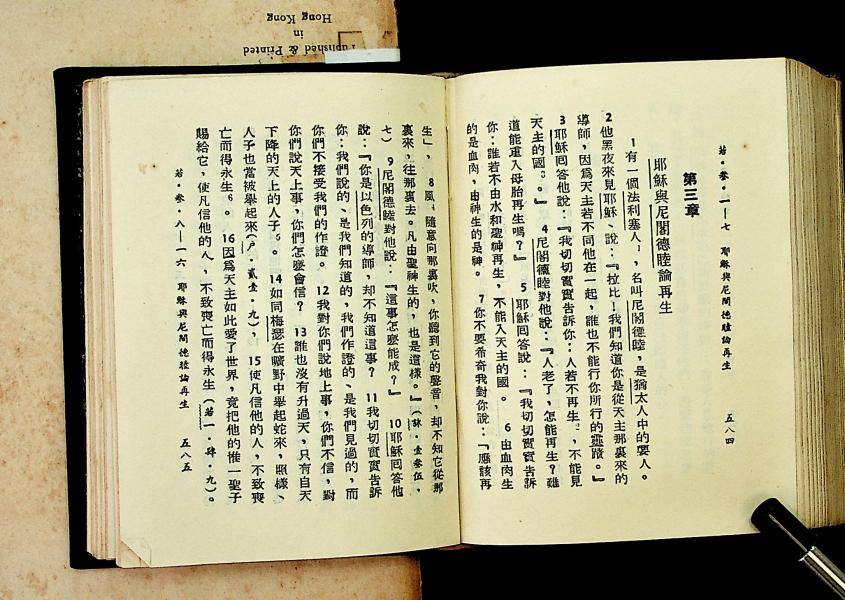 Published & Printed
in
Hong Kong
若·叁·一—七 耶穌與尼閣德睦論再生 五八四
第三章
耶穌與尼閣德睦論再生
1有一個法利塞人，名叫尼閣德睦，是猶太人中的要人。
2他黑夜來見耶穌、說：『拉比！我們知道你是從天主那裏來的
導師，因爲天主若不同他在一起，誰也不能行你所行的靈蹟。』
3耶穌回答他說：『我切切實實告訴你：人若不再生²，不能見
天主的國³。』 4尼閣德睦對他說：『人老了，怎能再生？難
道能重入母胎再生嗎？』 5耶穌回答說：『我切切實實告訴
你：誰若不由水和聖神再生，不能入天主的國。 6由血肉生
的是血肉，由神生的是神。 7你不要希奇我對你說：「應該再
生」， 8風，隨意向那裏吹，你聽到它的聲音，却不知它從那
裏來，往那裏去。凡由聖神生的，也是這樣。』（詠·壹叁伍，
七） 9尼閣德睦對他說：『這事怎麼能成？』 10耶穌回答他
說：『你是以色列的導師，却不知道這事？ 11我切切實實告訴
你：我們說的、是我們知道的，我們作證的、是我們見過的，而
你們不接受我們的作證。 12我對你們說地上事，你們不信，對
你們說天上事，你們怎麼會信？ 13誰也沒有升過天，只有自天
下降的天上的人子⁵。 14如同梅瑟在曠野中舉起蛇來，照樣、
人子也當被舉起來（戶·貳壹·九）， 15使凡信他的人，不致喪
亡而得永生⁶。 16因爲天主如此愛了世界，竟把他的惟一聖子
賜給它，使凡信他的人，不致喪亡而得永生（若一·肆·九）。
若·叁·八—一六 耶穌與尼閣德睦論再生 五八五